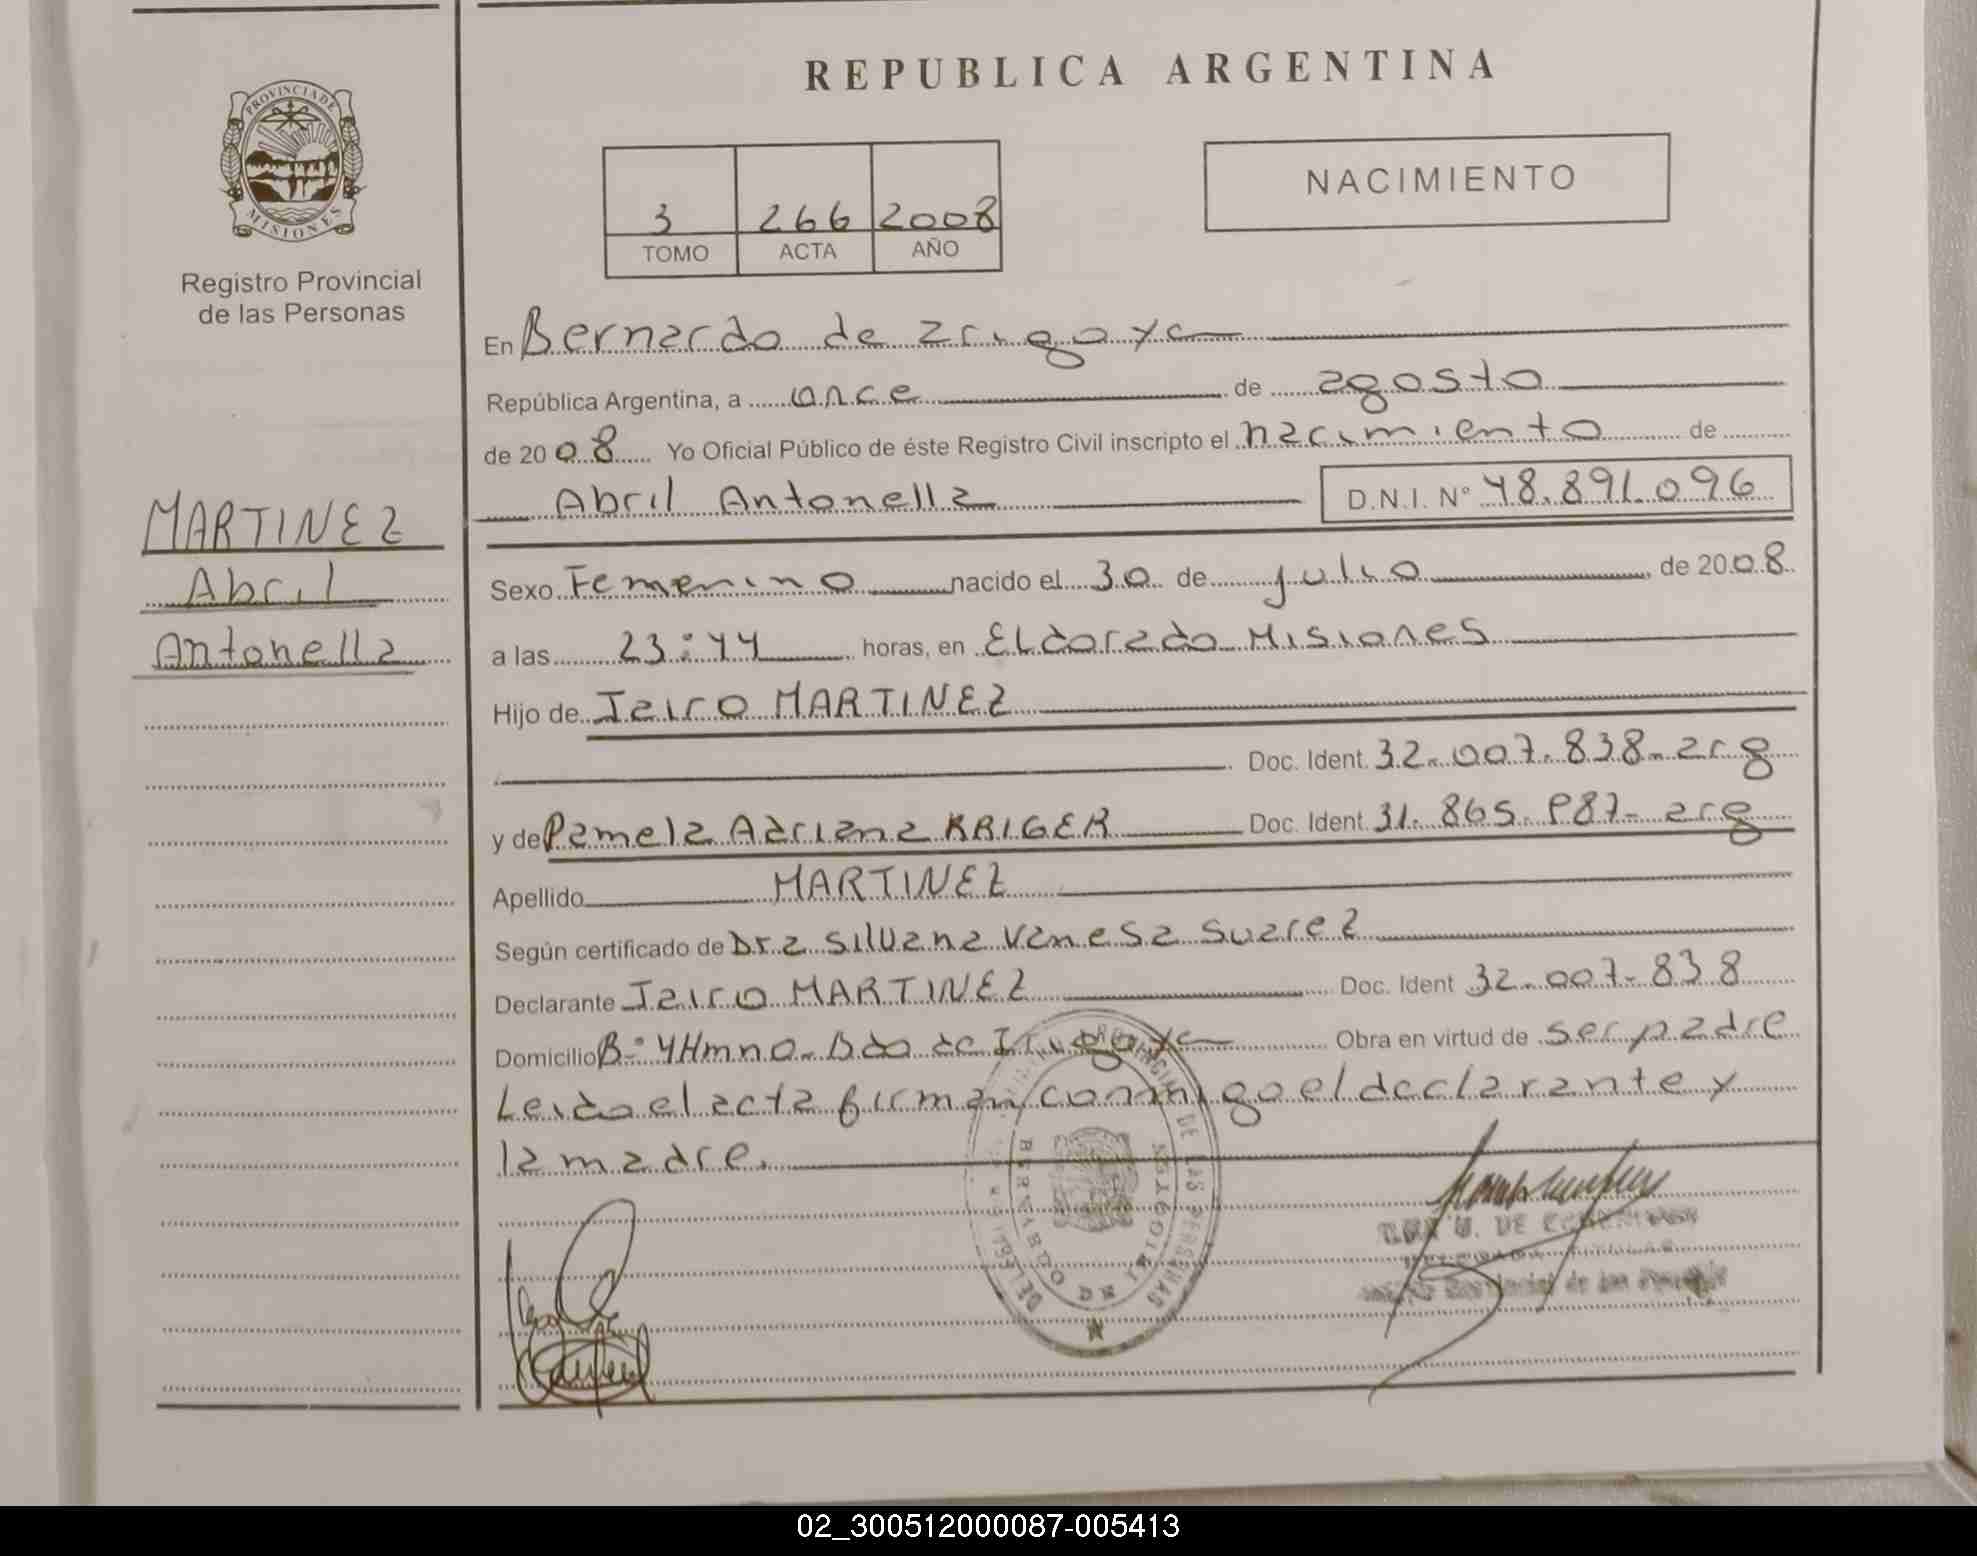 REPUBLICA ARGENTINA
PROVINCIA DE
MISIONES
Registro Provincial
de las Personas
NACIMIENTO
3 266 2008
TOMO ACTA AÑO
En Bernardo de Irigoyen
República Argentina, a once de agosto
de 2008 Yo Oficial Público de éste Registro Civil inscripto el nacimiento de
Abril Antonella D.N.I. N° 48.891.096
MARTINEZ
Abril
Antonella
Sexo Femenino nacido el 30 de julio, de 2008
a las 23:44 horas, en Eldorado Misiones
Hijo de Jairo MARTINEZ
Doc. Ident. 32.007.838-arg
y de Pamela Adriana KRIGER Doc. Ident. 31.865.987-arg
Apellido MARTINEZ
Según certificado de Dra Silvana Vanesa Suarez
Declarante Jairo MARTINEZ Doc. Ident 32.007.838
Domicilio B° 4Hmno-Bdo de Irigoyen Obra en virtud de ser padre
Leido el acta firman conmigo el declarante y
la madre.
BERNARDO DE IRIGOYEN
DE LAS PERSONAS
02_300512000087-005413